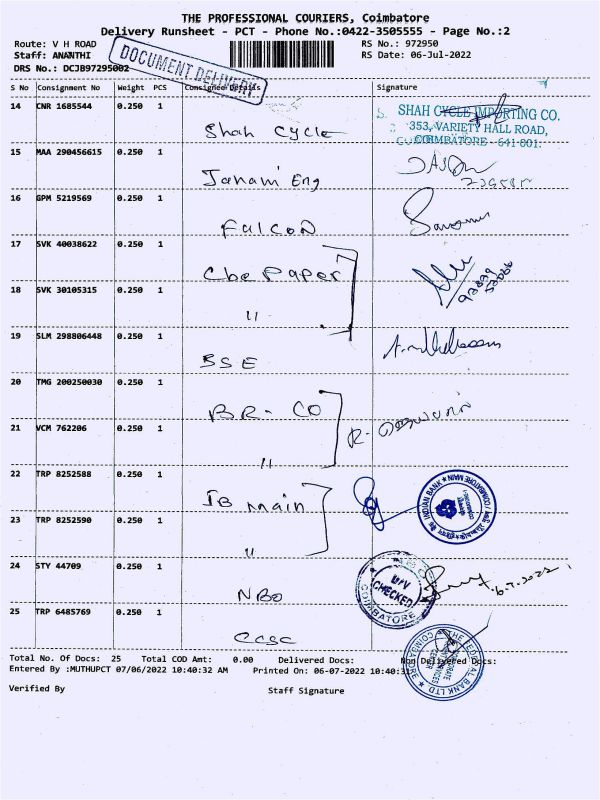 THE PROFESSIONAL COURIERS, Coimbatore
Delivery Runsheet - PCT - Phone No.:0422-3505555 - Page No.:2
Route: V H ROAD
RS No.: 972950
Staff: ANANTHI
RS Date: 06-Jul-2022
DRS No.: DCJB97295002
DOCUMENT DELIVERY
S No Consignment No Weight PCS Consignee Details Signature
14 CNR 1685544 0.250 1
Shah Cycle
SHAH CYCLE IMPORTING CO.
353, VARIETY HALL ROAD,
COIMBATORE - 641 001.
15 MAA 290456615 0.250 1
Janani Eng
16 GPM 5219569 0.250 1
Falcon
17 SVK 40038622 0.250 1
Cbe Paper
18 SVK 30105315 0.250 1
"
19 SLM 298806448 0.250 1
BSE
20 TMG 200250030 0.250 1
BR-CO
21 VCM 762206 0.250 1
"
22 TRP 8252588 0.250 1
IB Main
INDIAN BANK
COIMBATORE MAIN
23 TRP 8252590 0.250 1
"
24 STY 44709 0.250 1
NBO
CHECKED
COIMBATORE
6.7.2022
25 TRP 6485769 0.250 1
CCSC
THE FEDERAL BANK LTD
COIMBATORE
Total No. Of Docs: 25 Total COD Amt: 0.00 Delivered Docs: Non Delivered Docs:
Entered By :MUTHUPCT 07/06/2022 10:40:32 AM Printed On: 06-07-2022 10:40:32
Verified By Staff Signature